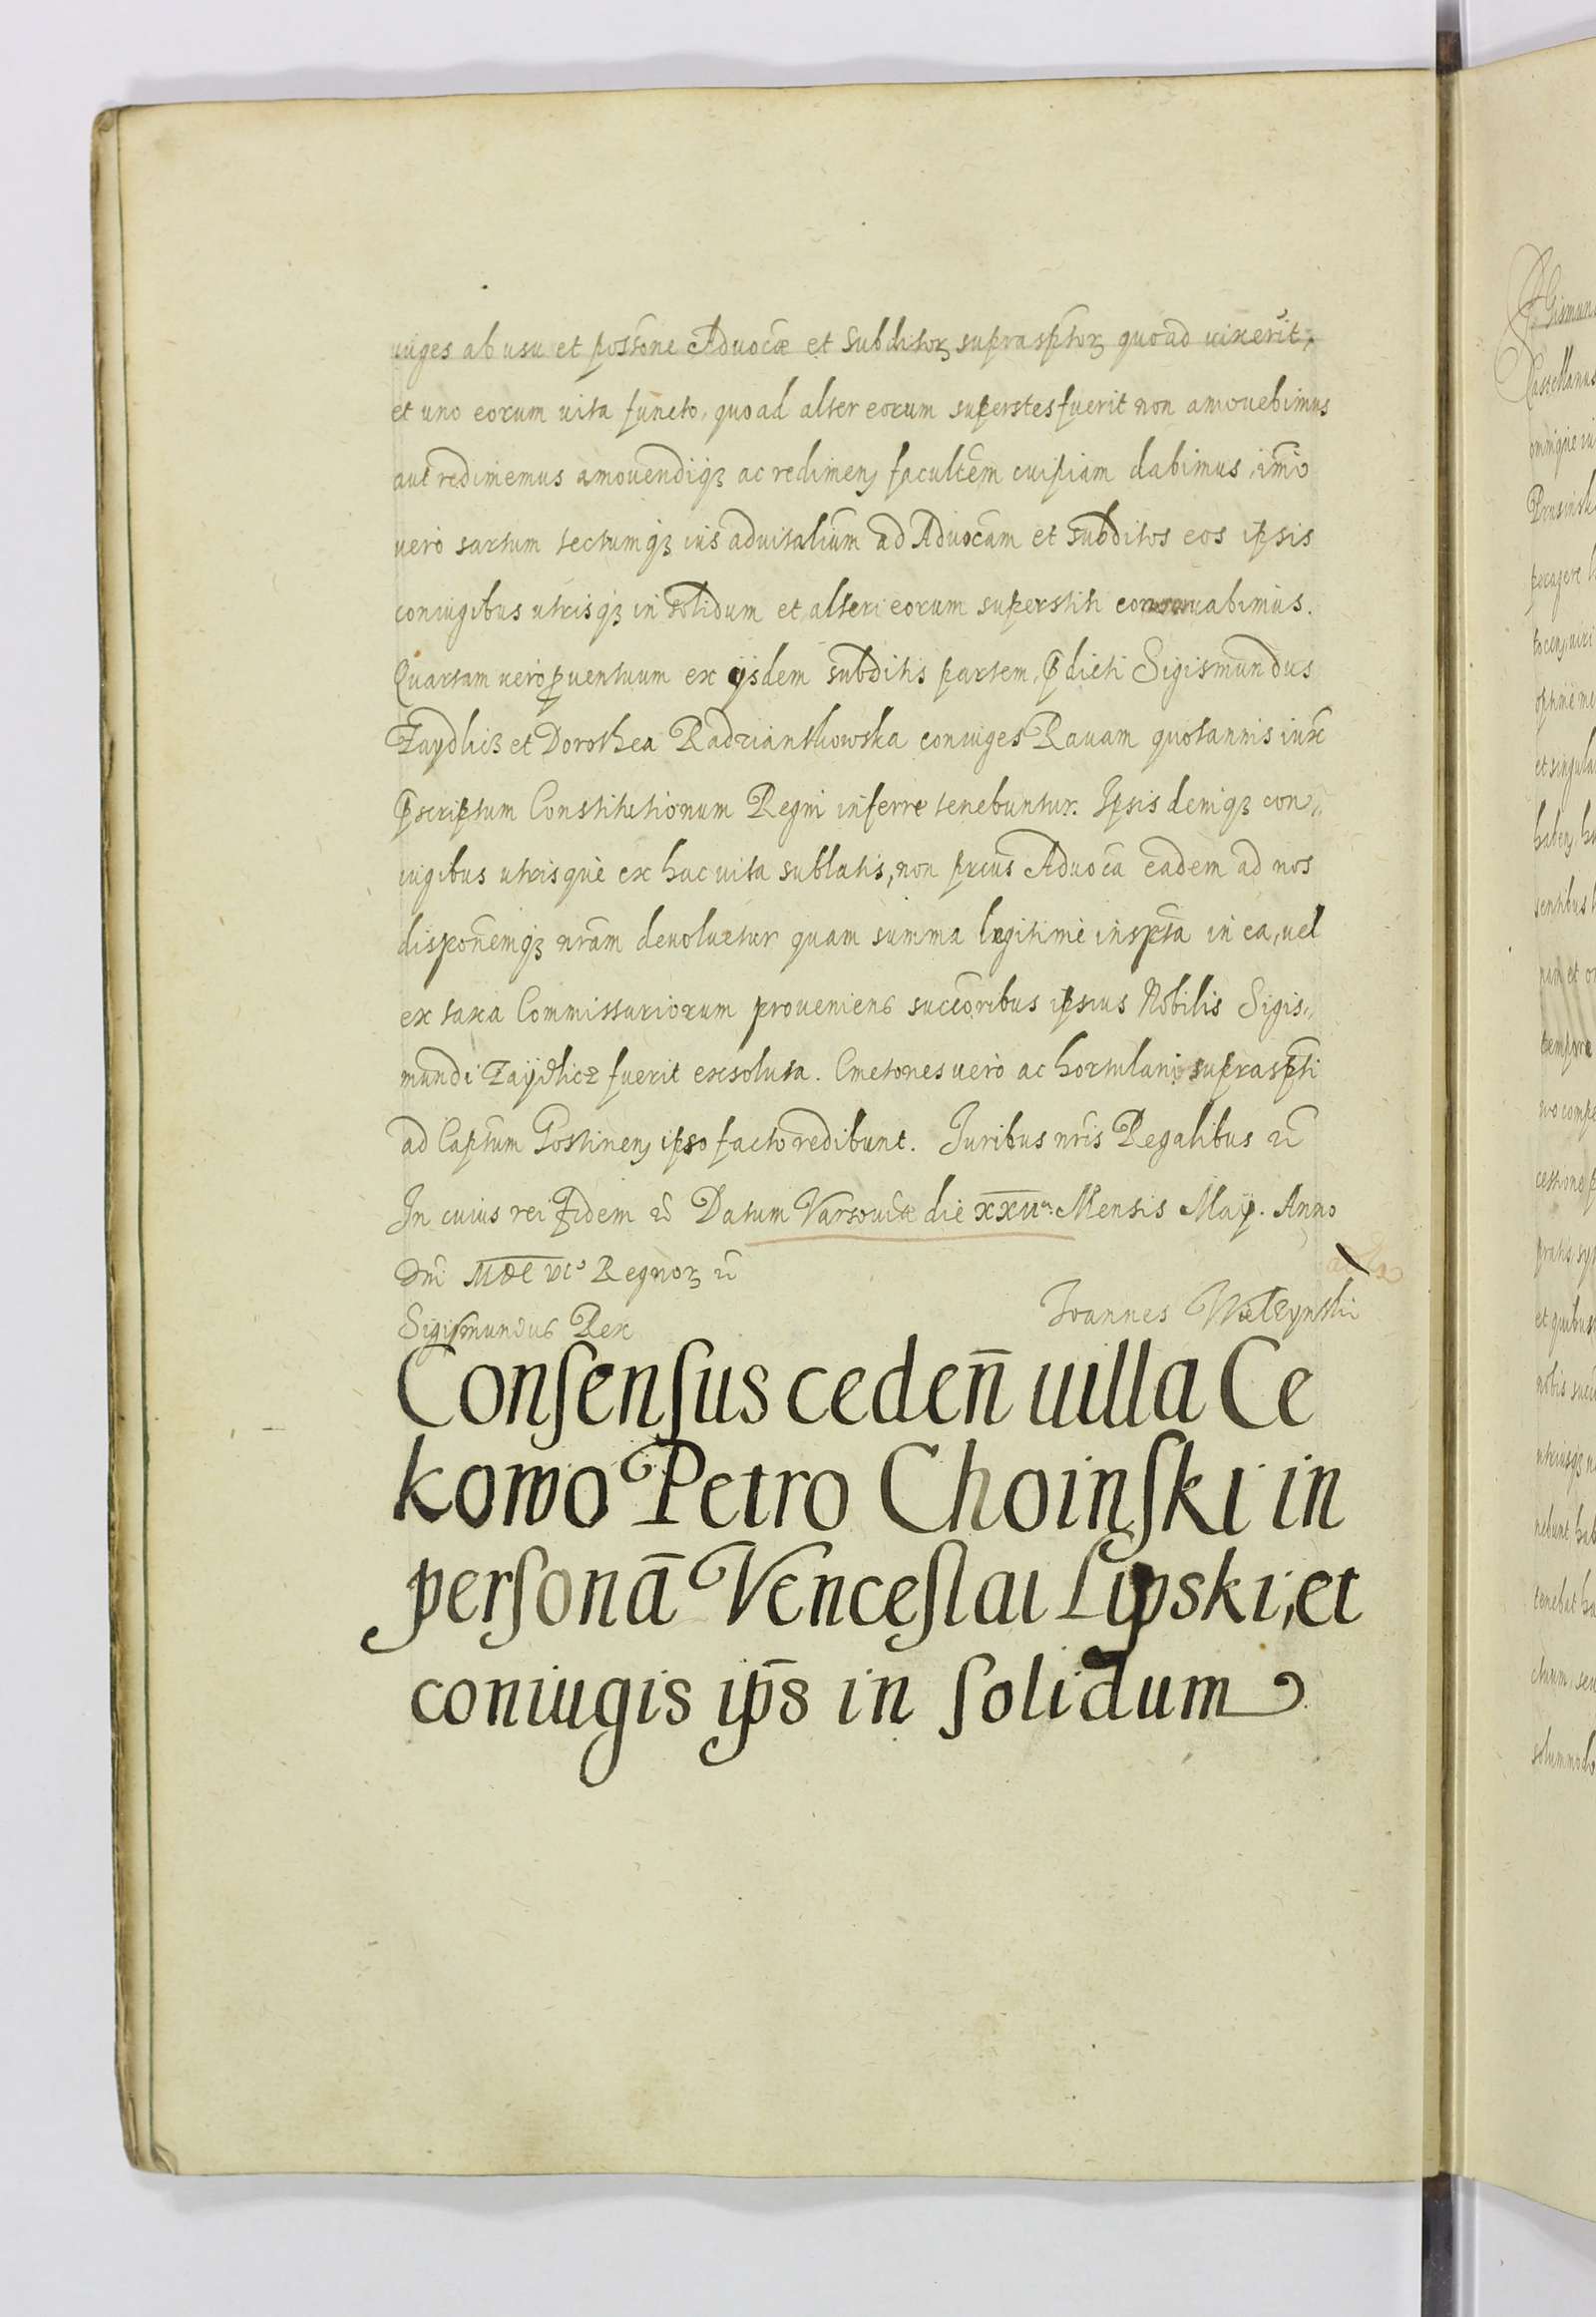 uiges ab usu et possõne Aduocãe et Subditoꝝ suprasptoꝝ quoad uixerit,
et uno eorum uita functo, quoad alter eorum superstes fuerit non amouebimus
aut redimemus amouendiqꝫ ac redimenꝫ facultẽm cuipiam dabimus, im̃o
uerò sartum tectumqꝫ ius aduitalium ad Aduocãm et subditos eos ipsis
coniugibus utrisqꝫ in solidum et alteri eorum superstiti conseruabimus.
Quartam uerò ꝓuentuum ex ijsdem subditis partem, p̃dicti Sigismundus
Zaydlicz et Dorothea Radziankowska coniuges Rauam quotannis iux̃
p̃scriptum Constitutionum Regni inferre tenebuntur. Ipsis deniqꝫ con„
iugibus utrisquè ex hac uita sublatis, non prius Aduocã eadem ad nos
disponẽmqꝫ nr̃am deuoluetur quam summa legitimè inscp̃ta in ea, uel
ex taxa Commissariorum proueniens succõribus ipsius Nobilis Sigis„
mundi Zaydlicz fuerit exsoluta. Cmetones uerò ac hortulani suprasp̃ti
ad Capt̃um Gostinenꝫ ipso facto redibunt. Juribus nr̃is Regalibus ꝛc̃
In cuius rei fidem ꝛc̃ Datum Varsouiæ die XXII.ᵃ Mensis Maij. Anno
Dm̃ MDCVIº Regnoꝝ ꝛc̃
Sigismundus Rex Joannes Wielzynski
Consensus cedeñ uilla Ce
kowo Petro Choinski in
personã Venceslai Lipski, et
coniugis ip̃s in solidum